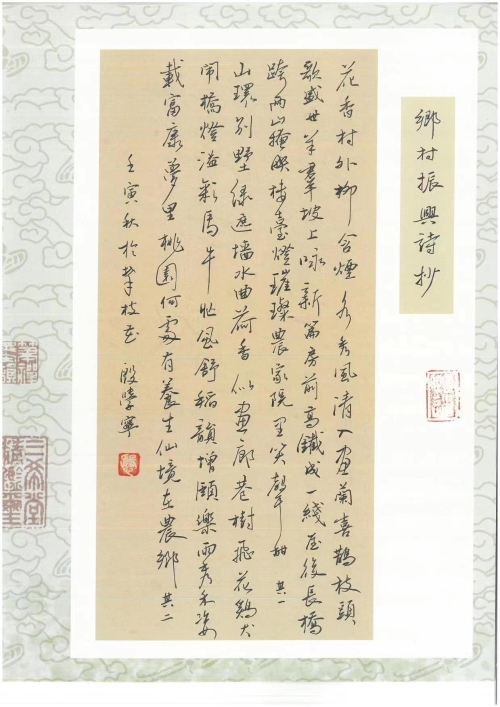 鄉村振興詩抄
花香村外柳含煙水秀風清入画蘭喜鵲枝頭
歌盛世羊羣坡上咏新篇房前高鐵成一綫屋後長橋
跨兩山掩映樓臺燈璀璨農家院里笑聲甜 其一
山環別墅綠遮墻水曲荷香似画廊巷樹飛花鷄犬
鬧橋燈溢彩馬牛壯風舒稻韻增頤樂雨秀禾姿
載富康夢里桃園何處有養生仙境在農鄉 其二
壬寅秋於攀枝花 殷學寧
三希堂
精鑑璽